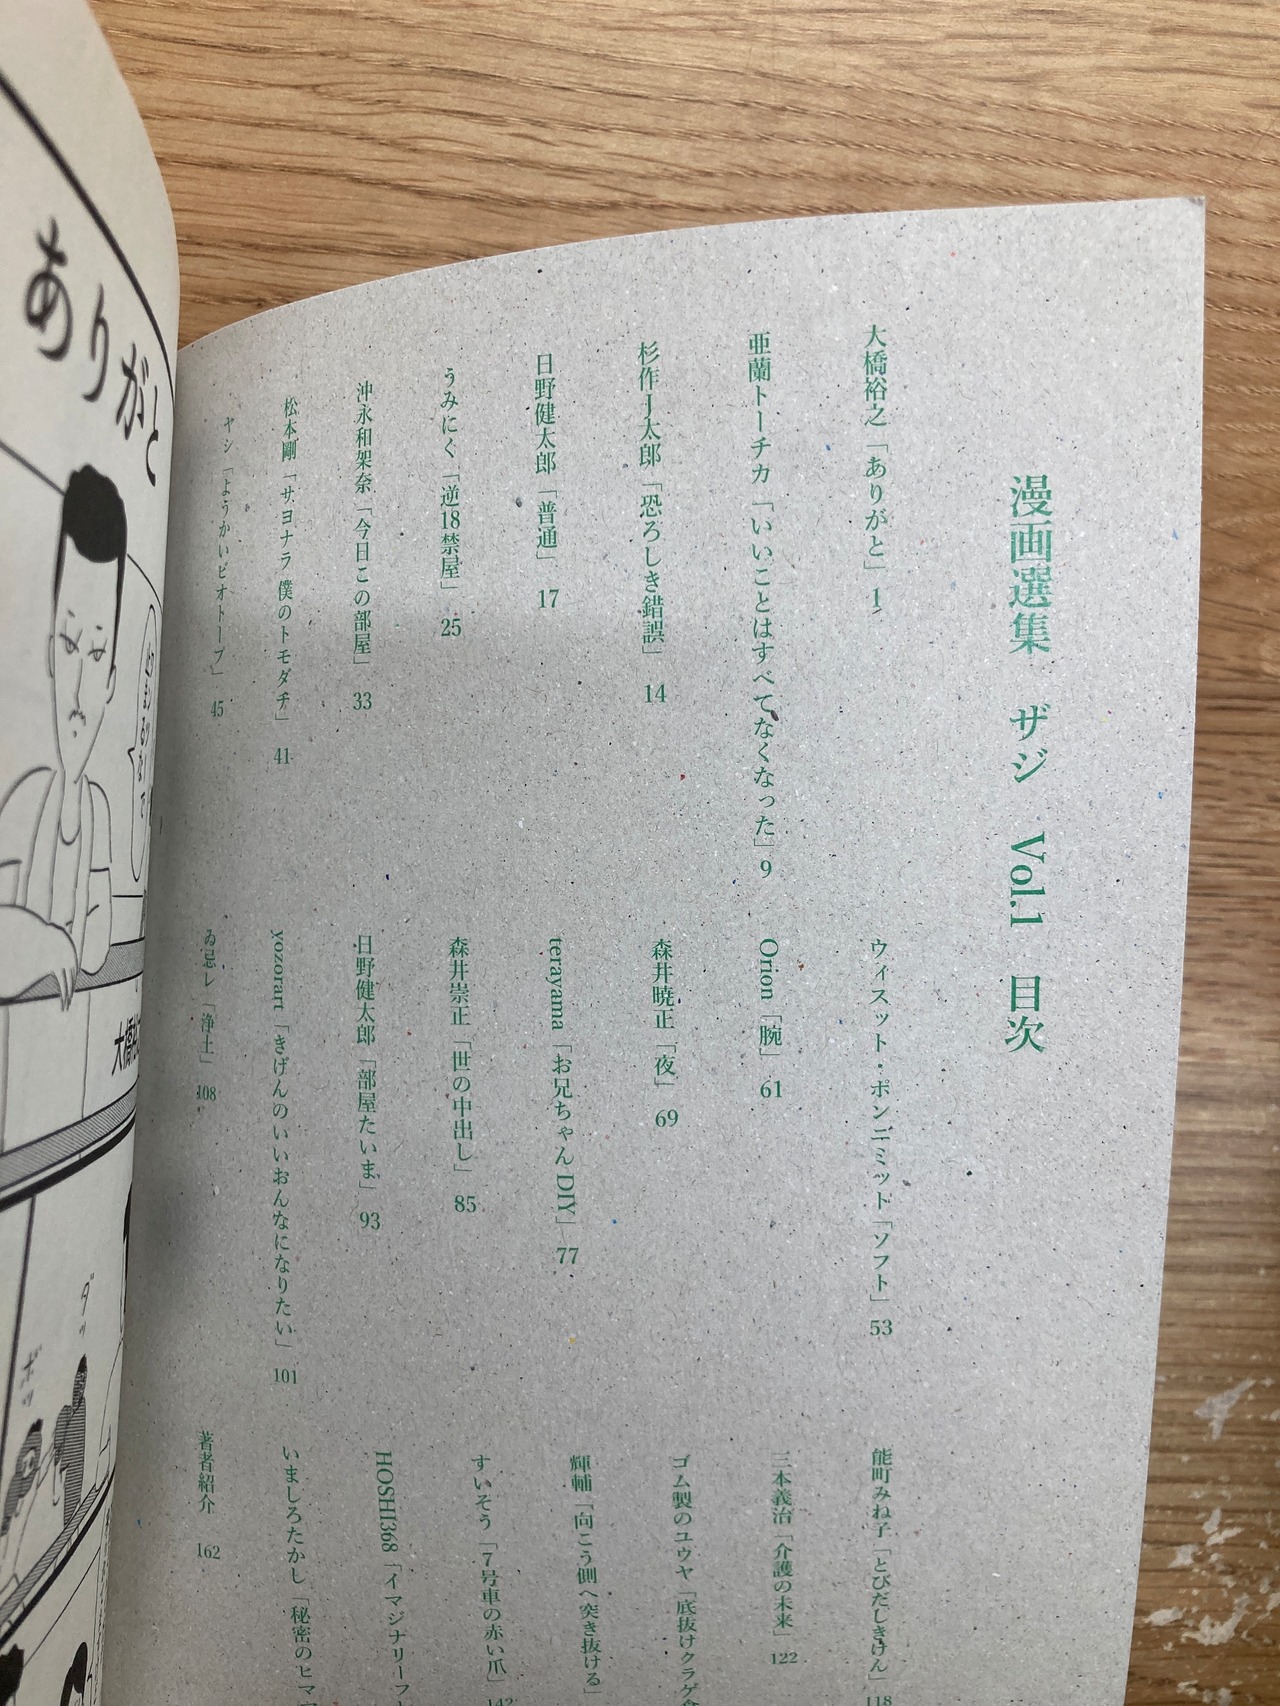 漫画選集 ザジ Vol.1 目次
大橋裕之「ありがと」 1
亜蘭トーチカ「いいことはすべてなくなった」 9
杉作J太郎「恐ろしき錯誤」 14
日野健太郎「普通」 17
うみにく「逆18禁屋」 25
沖永和架奈「今日この部屋」 33
松本剛「サヨナラ 僕のトモダチ」 41
ヤシ「ようかいビオトープ」 45
ウィスット・ポンニミット「ソフト」 53
Orion「腕」 61
森井暁正「夜」 69
terayama「お兄ちゃんDIY」 77
森井崇正「世の中出し」 85
日野健太郎「部屋たいま」 93
yozorart「きげんのいいおんなになりたい」 101
ゐ忌レ「浄土」 108
能町みね子「とびだしきけん」 118
三本義治「介護の未来」 122
ゴム製のユウヤ「底抜けクラゲ
輝輔「向こう側へ突き抜ける」
すいそう「7号車の赤い爪」 142
HOSHI368「イマジナリーフ
いましろたかし「秘密のヒマ
著者紹介 162
ありがと
ダッ
ボッ